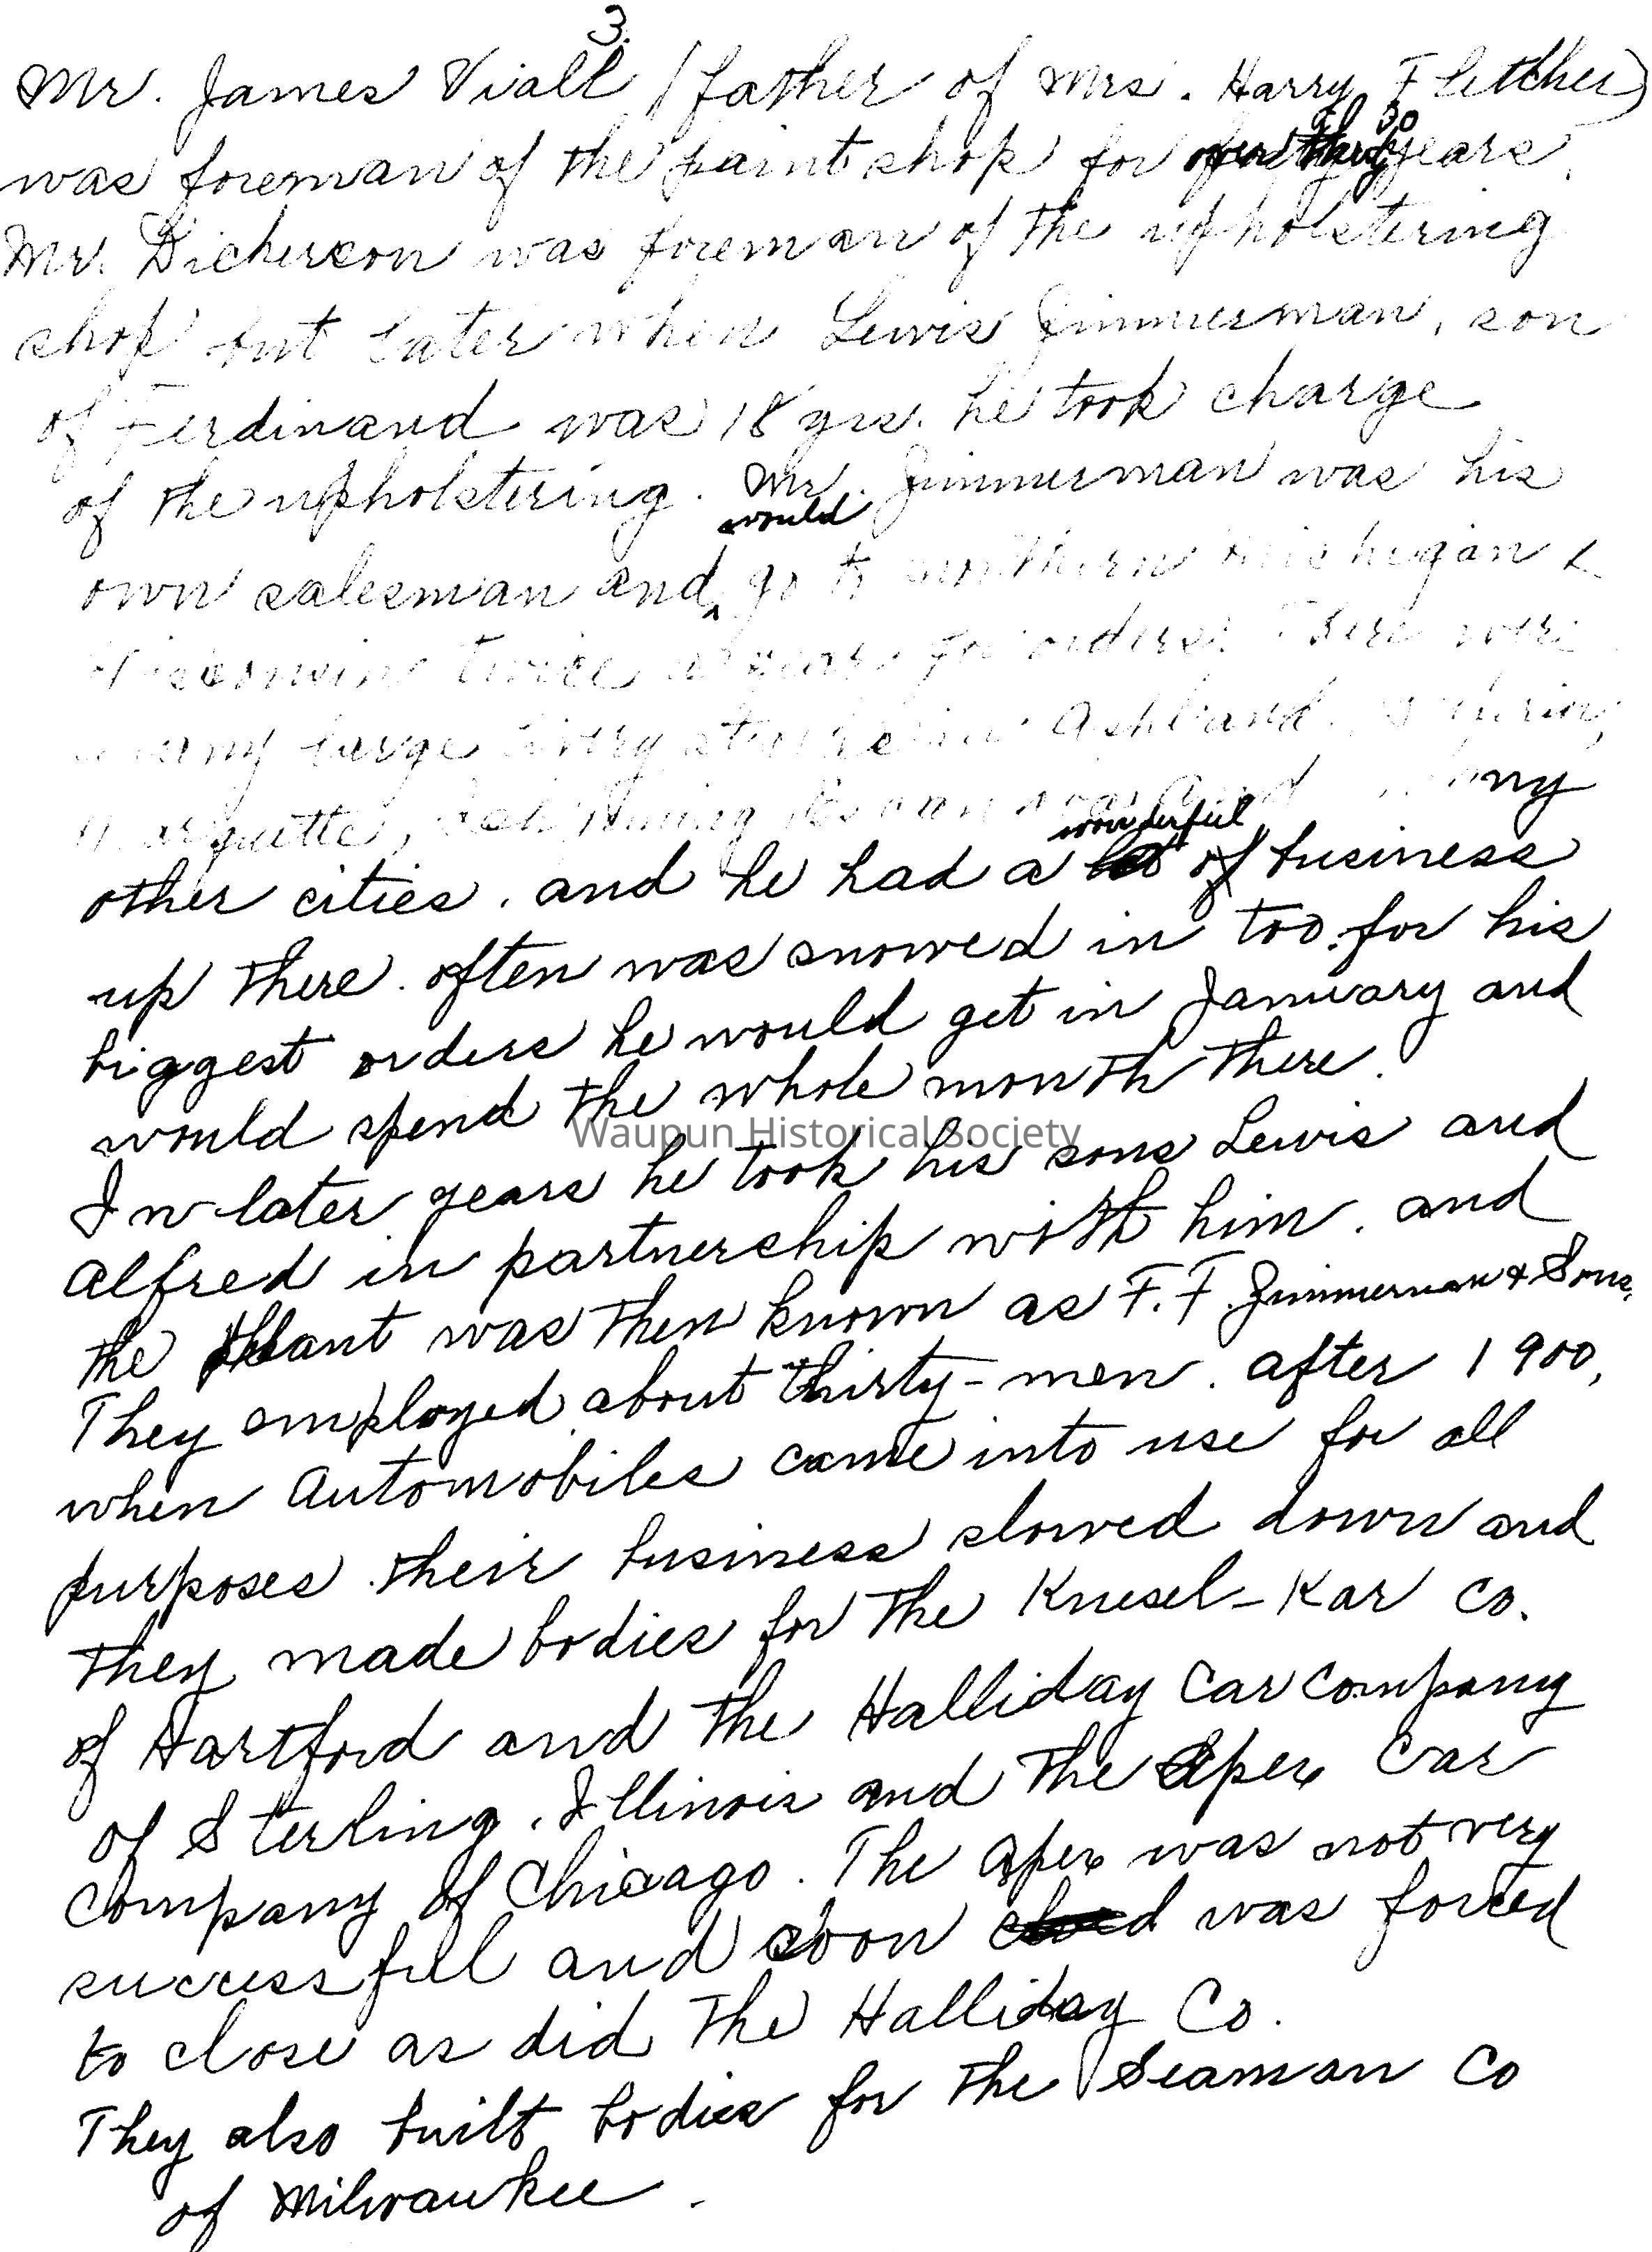 3.
Mr. James Viall (father of Mrs. Harry Fletcher)
was foreman of the paint shop for years.
Mr. Dickerson was foreman of the upholstering
shop but later when Lewis Zimmerman, son
of Ferdinand was 18 yrs. he took charge
of the upholstering. Mr. Zimmerman was his
would
own salesman and go to northern Michigan &
Wisconsin twice a year for orders. There were
many large livery stables in Ashland,
Marquette, and many
wonderful
other cities. and he had a of business
up there. often was snowed in too. for his
biggest orders he would get in January and
would spend the whole month there.
Waupun Historical Society
In later years he took his sons Lewis and
Alfred in partnership with him. and
the plant was then known as F. F. Zimmerman & Sons.
They employed about thirty-men. after 1900,
when Automobiles came into use for all
purposes. their business slowed down and
they made bodies for the Knesel-Kar Co.
of Hartford and the Halliday Car Company
of Sterling, Illinois and the Apex Car
Company of Chicago. The Apex was not very
successful and soon was forced
to close as did the Halliday Co.
They also built bodies for the Seaman Co
of Milwaukee.